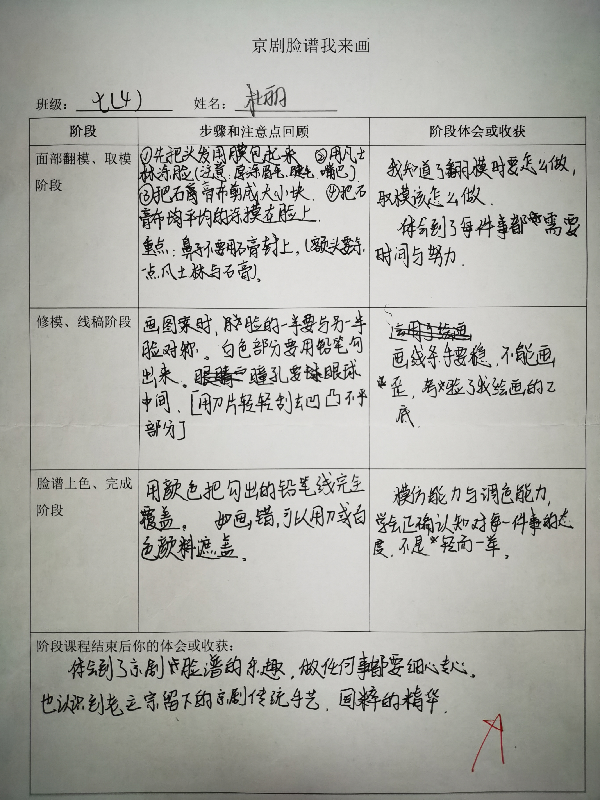 京剧脸谱我来画
班级：七(4) 姓名：杜丽
阶段 步骤和注意点回顾 阶段体会或收获
面部翻模、取模
阶段
①先把头发用膜包起来 ②用凡士
林涂脸(注意：厚涂眉毛、睫毛、嘴巴)
③把石膏布剪成大小块. ④把石
膏布均平均的涂摸在脸上.
重点：鼻子不要用石膏封上，(额头要涂
一点凡士林与石膏)。
我知道了翻模时要怎么做，
取模该怎么做.
体会到了每件事都需要
时间与努力.
修模、线稿阶段
画图案时，脸的一半要与另一半
脸对称。白色部分要用铅笔勾
出来。瞳孔要球眼球
中间.[用刀片轻轻刮去凹凸不平
部分]
运用手绘画
画线条手要稳，不能画
歪，考验了我绘画的工
底.
脸谱上色、完成
阶段
用颜色把勾出的铅笔线完全
覆盖。如画错，可以用刀或白
色颜料遮盖。
模仿能力与调色能力，
学会正确认知对每一件事的态
度，不是轻而一举。
阶段课程结束后你的体会或收获：
体会到了京剧脸谱的乐趣，做任何事都要细心专心。
也认识到老立宗留下的京剧传统手艺，国粹的精华.
A